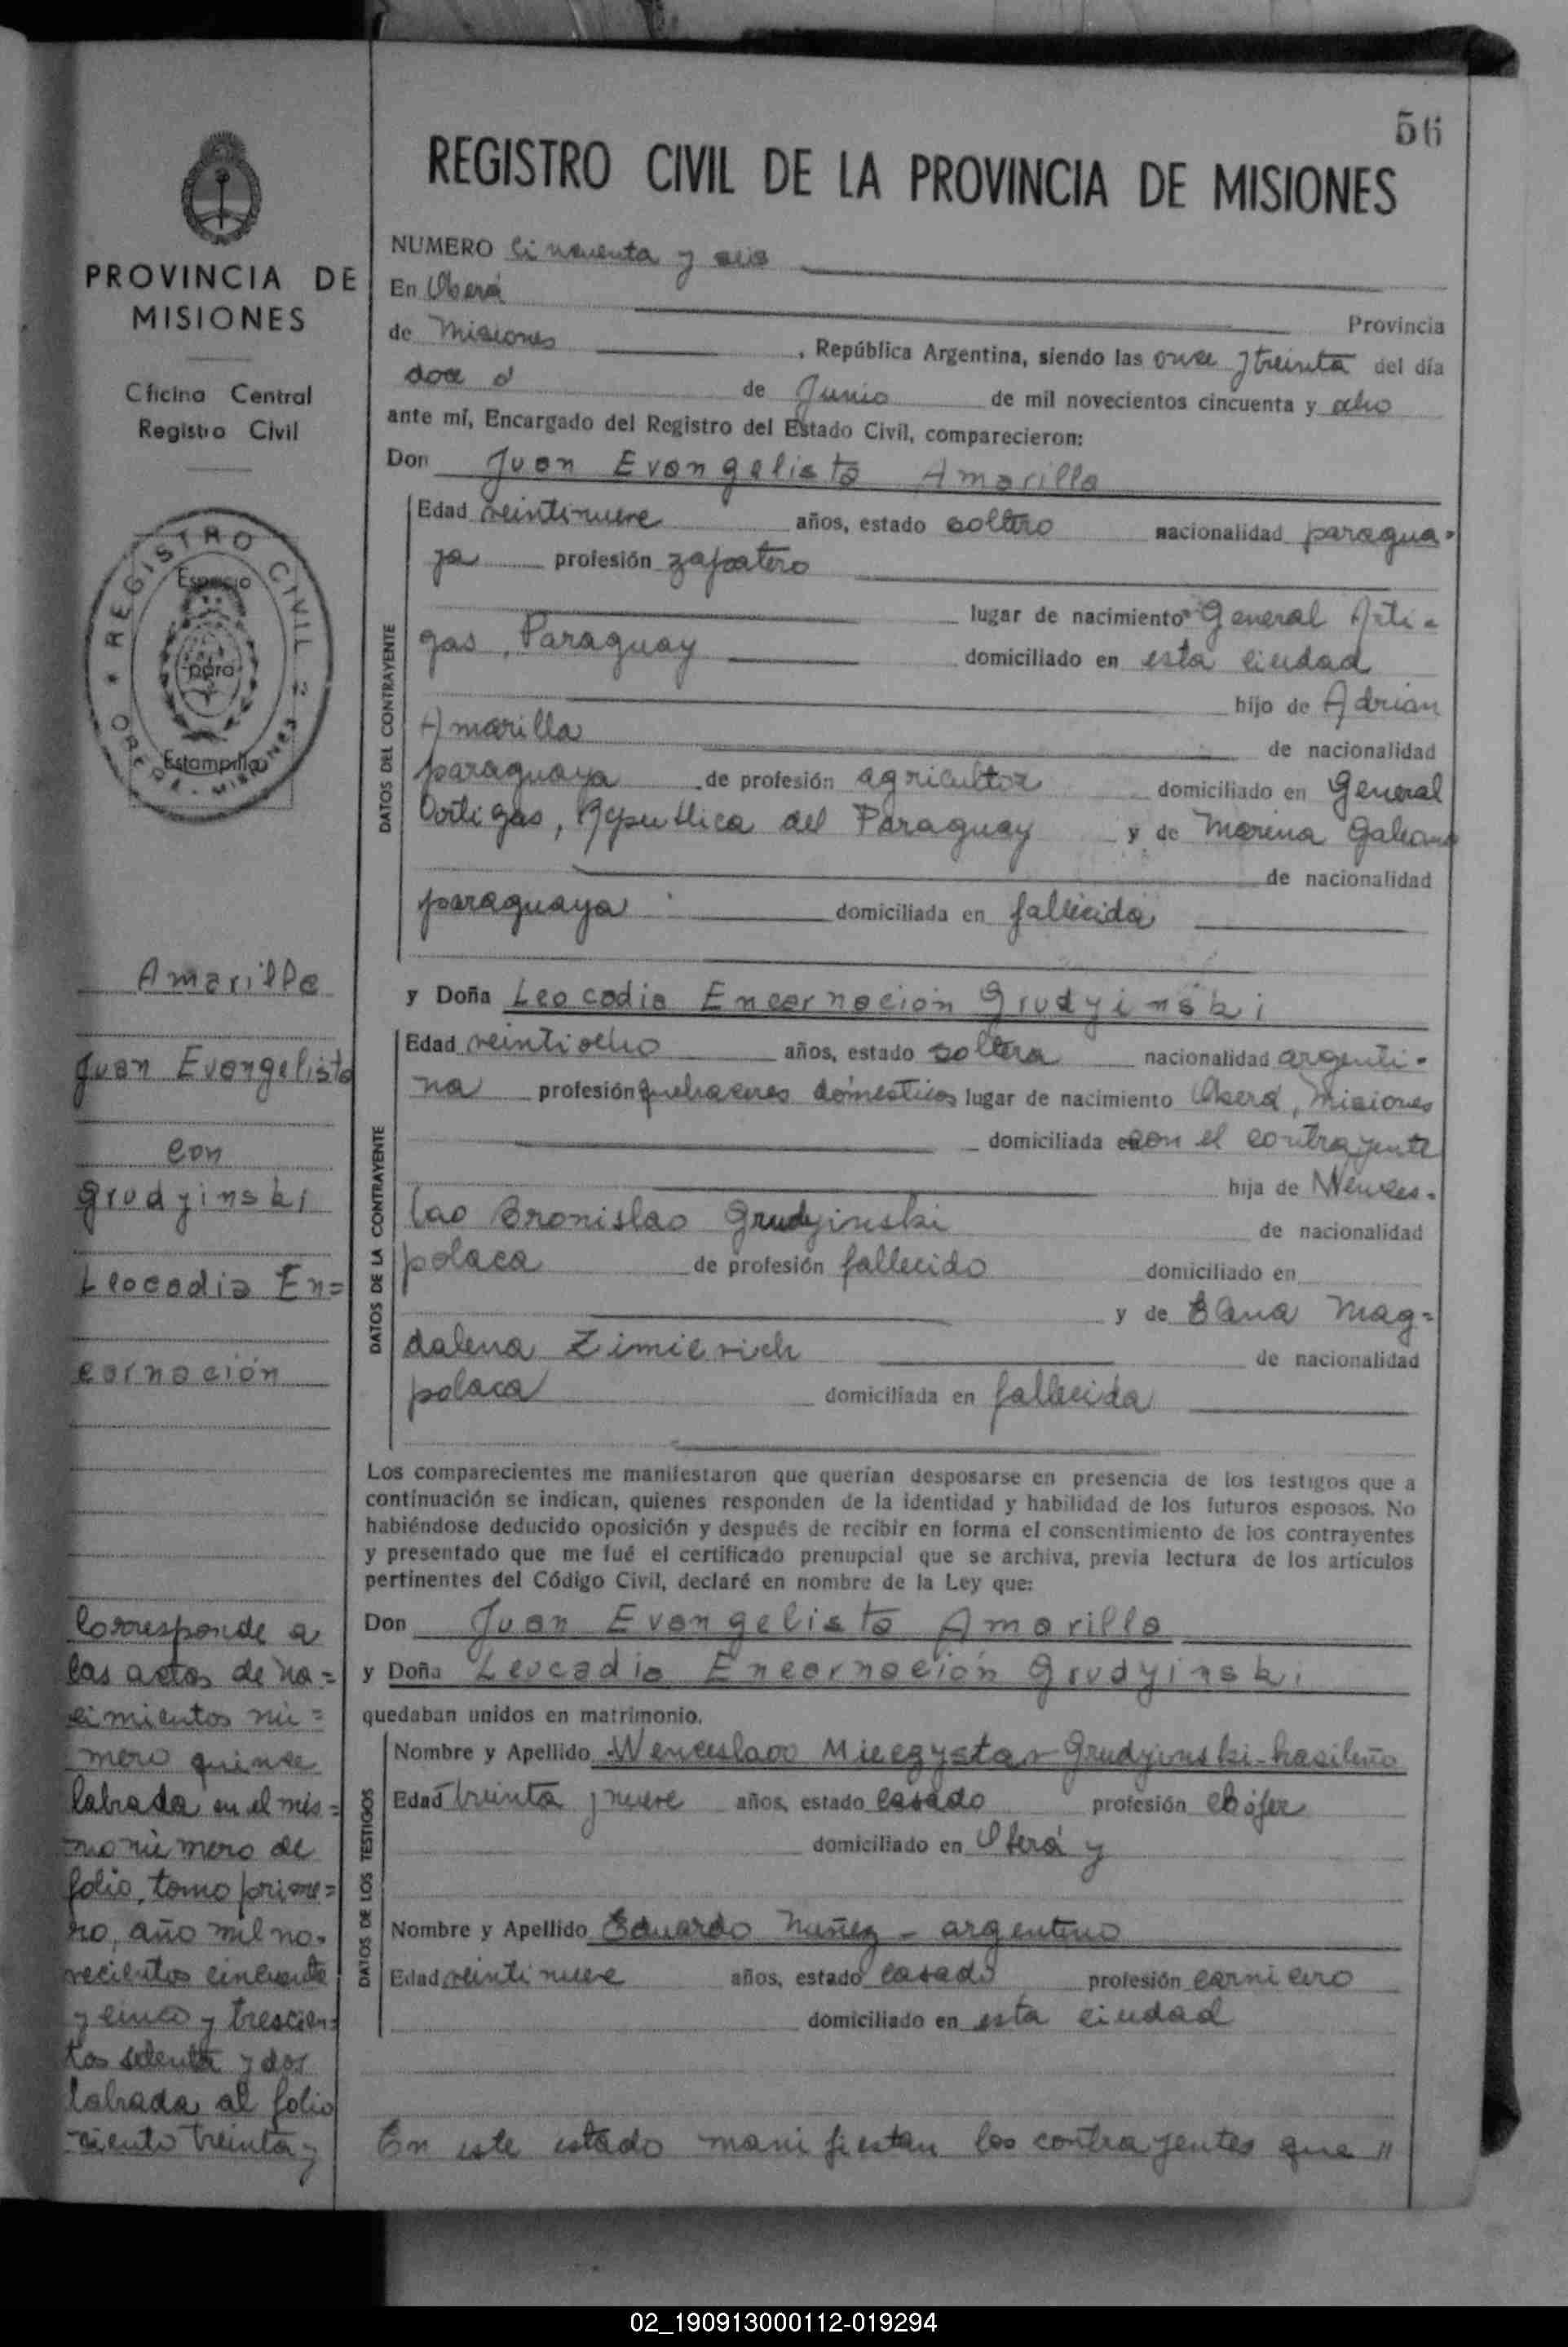 56
PROVINCIA DE
MISIONES
Oficina Central
Registro Civil
REGISTRO CIVIL
Espacio
para
Estampilla
OBERA - MISIONES
Amarilla
Juan Evangelista
con
Grudyinski
Leocadia En=
carnación
Corresponde a
las actas de na=
cimientos nú=
mero quince
labrada en el mis=
mo número de
folio, tomo prime=
ro, año mil no-
vecientos cincuenta
y cinco y trescien=
tos setenta y dos
labrada al folio
ciento treinta y
REGISTRO CIVIL DE LA PROVINCIA DE MISIONES
NUMERO Cincuenta y seis
En Oberá
Provincia
de Misiones, República Argentina, siendo las once y treinta del día
doce de Junio de mil novecientos cincuenta y ocho
ante mí, Encargado del Registro del Estado Civil, comparecieron:
Don Juan Evangelista Amarilla
DATOS DEL CONTRAYENTE
Edad veintinueve años, estado soltero nacionalidad paragua-
ya profesión zapatero
lugar de nacimiento General Arti-
gas, Paraguay domiciliado en esta ciudad
hijo de Adrian
Amarilla de nacionalidad
paraguaya de profesión agricultor domiciliado en General
Artigas, Republica del Paraguay y de Marina Galeano
de nacionalidad
paraguaya domiciliada en fallecida
y Doña Leocadia Encarnación Grudyinski
DATOS DE LA CONTRAYENTE
Edad veintiocho años, estado soltera nacionalidad argenti-
na profesión quehaceres domésticos lugar de nacimiento Oberá, Misiones
domiciliada en con el contrayente
hija de Wences-
lao Bronislao Grudyinski de nacionalidad
polaca de profesión fallecido domiciliado en
y de Elena Mag=
dalena Zimierich de nacionalidad
polaca domiciliada en fallecida
Los comparecientes me manifestaron que querían desposarse en presencia de los testigos que a
continuación se indican, quienes responden de la identidad y habilidad de los futuros esposos. No
habiéndose deducido oposición y después de recibir en forma el consentimiento de los contrayentes
y presentado que me fué el certificado prenupcial que se archiva, previa lectura de los artículos
pertinentes del Código Civil, declaré en nombre de la Ley que:
Don Juan Evangelista Amarilla
y Doña Leocadia Encarnación Grudyinski
quedaban unidos en matrimonio.
DATOS DE LOS TESTIGOS
Nombre y Apellido Wenceslao Grudyinski-brasileño
Edad treinta y nueve años, estado casado profesión chófer
domiciliado en Oberá y
Nombre y Apellido Eduardo Nuñez - argentino
Edad veintinueve años, estado casado profesión carnicero
domiciliado en esta ciudad
En este estado manifiestan los contrayentes que "
02_190913000112-019294